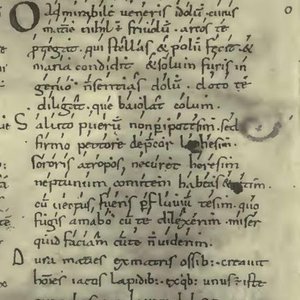 O admirabile veneris idolũ cuius
materie nihil ẽ frivolũ. arcos te
ptegat. qui stellas & polũ fecit &
maria condidit & solum furis in
genio nsentias dolũ. cloto te
diligat. que baiolat colum.
Saluto puerũ non p ipotesim. sed
firmo pectore depcor lachesim.
sororis atropos, ne curet heresim
neptunum comitem habeas & tetim.
cũ vectus, fueris p fluviũ tesim. quo
fugis amabo cũ te dilexerim. miser
quid faciam cũ te n viderim.
Dura materies ex matris ossib; creavit
hoies iactis lapidib; ex qb; unus ẽ iste